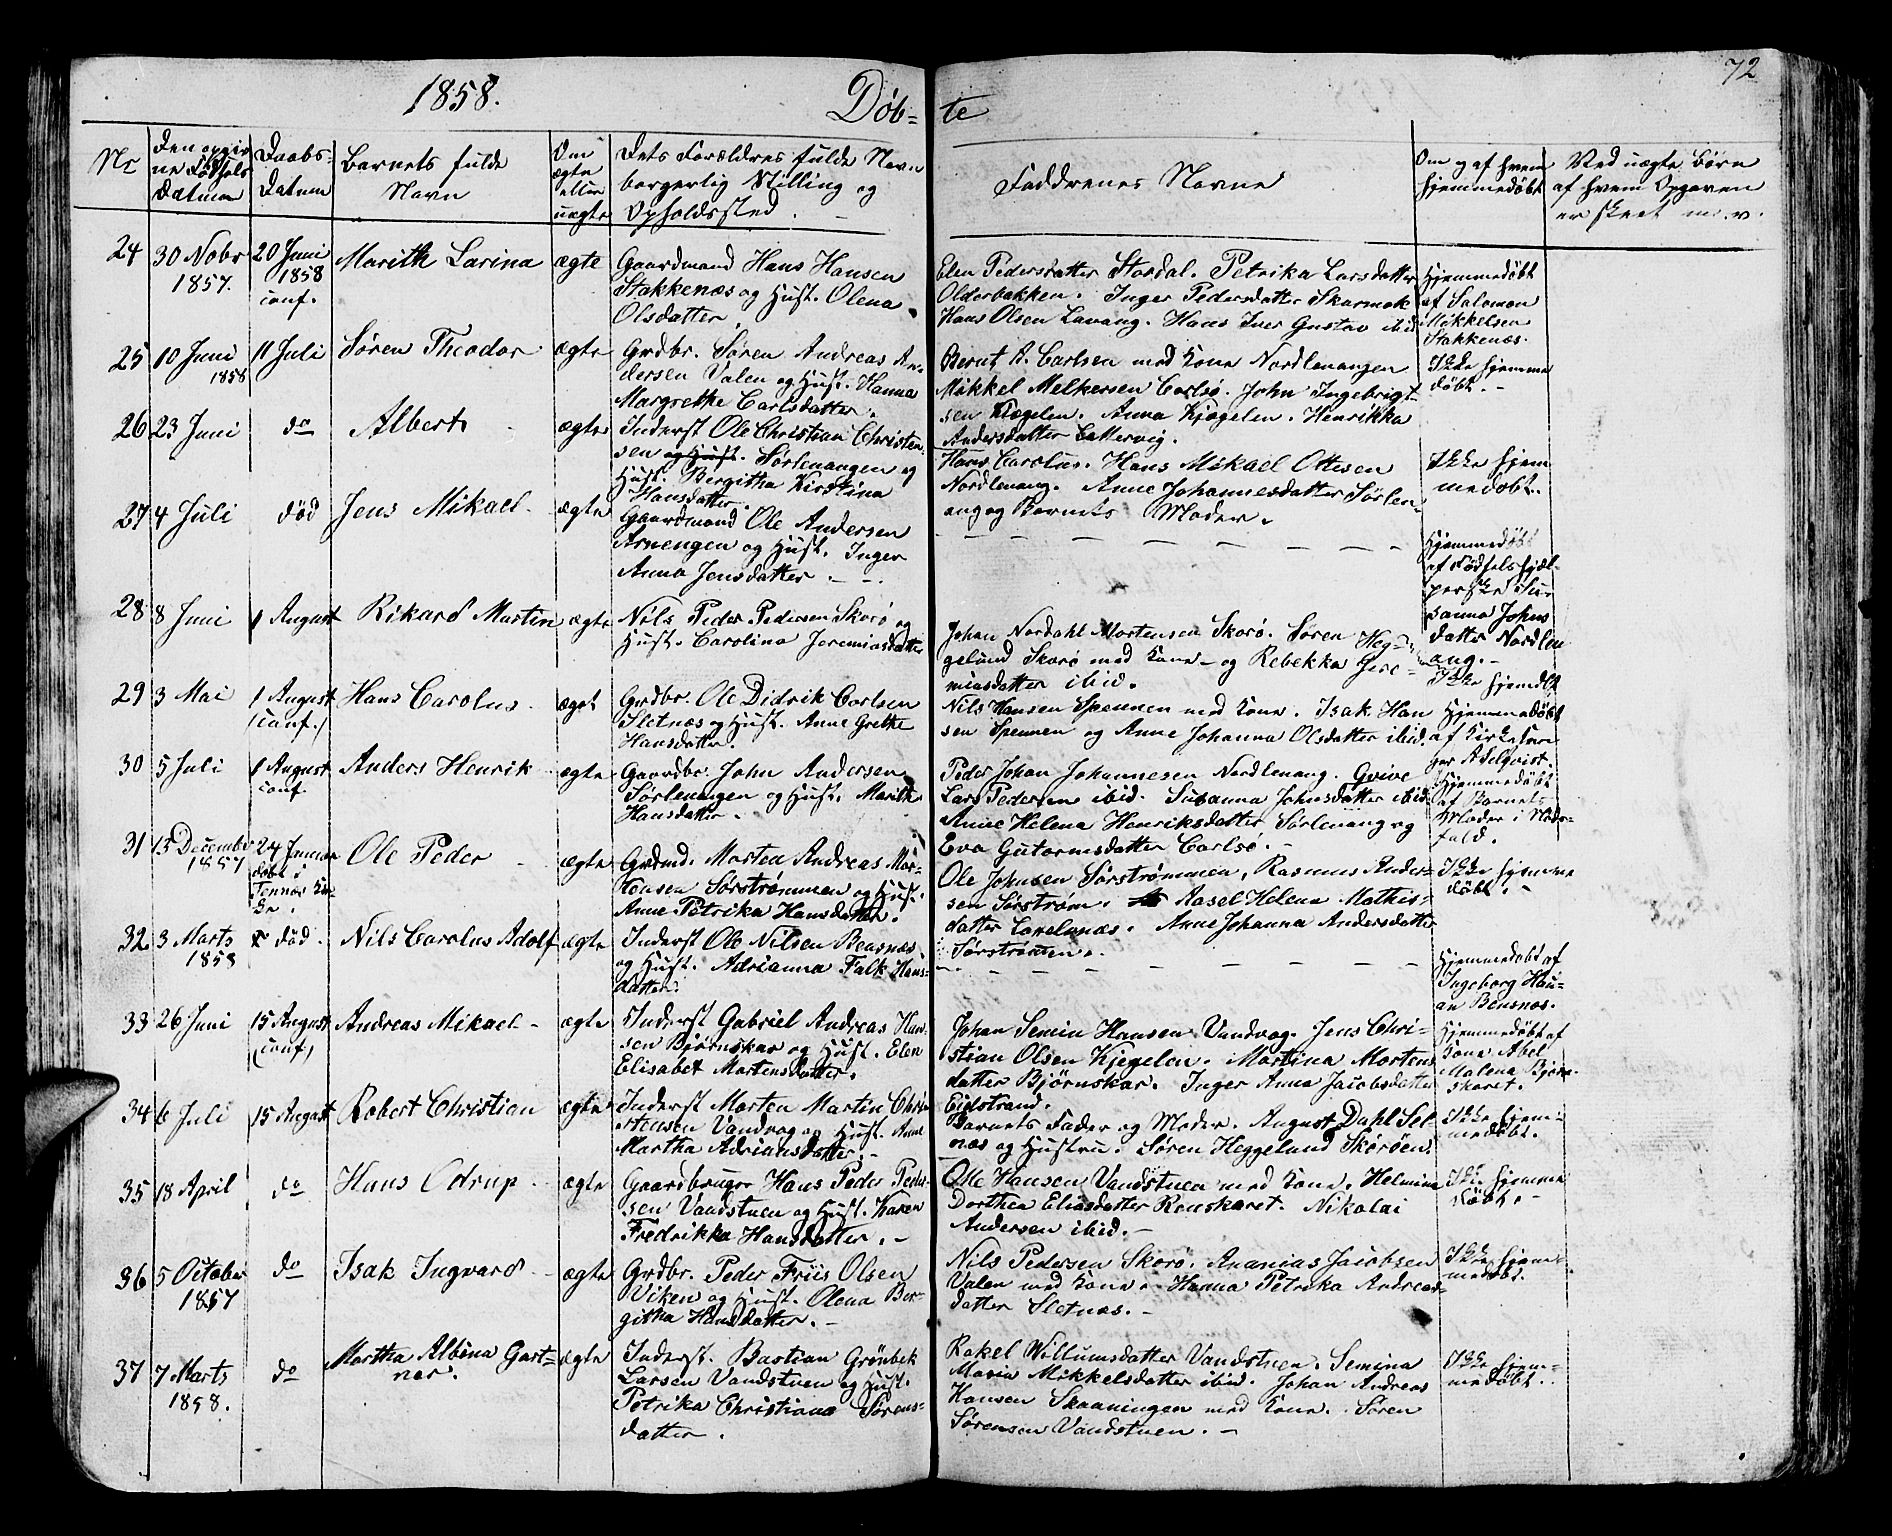 72
1858.
Døb-
te
Nr
Den opgiv
ne Fødsels
Datum
Daabs-
Datum
Barnets fulde
Navn
Om
ægte
eller
uægte
Dets Forældres fulde Navn
borgerlig Stilling og
Opholdssted.
Faddrenes Navne
Om og af hvem
hjemmedøbt
Ved uægte Børn
af hvem Opgaven
er skeet m.v.
24
30 Nobr
1857.
20 Juni
1858
conf.
Marith Larina
ægte
Gaardmand Hans Hansen
Stakkenæs og Hust. Olena
Olsdatter.
Elen Pedersdatter Stordal. Petrika Larsdatter
Olderbakken. Inger Pedersdatter Skarmok
Hans Olsen Lavang. Hans Iver Gustav ibid
Hjemmedøbt
af Salomon
Mikkelsen
Stakkenæs.
25
10 Juni
1858
11 Juli
Søren Theodor
ægte
Grdbr. Søren Andreas An-
dersen Valen og Hust. Hanna
Margrethe Carlsdatter.
Bernt A. Carlsen med Kone Nordlenangen
Mikkel Melkersen Carlsø. John Ingebrigt-
sen Kjægelen. Anna Kjægelen. Henrikka
Andersdatter Lattervig.
Ikke hjemme
døbt. -
26
23 Juni
do
Albert
ægte
Inderst Ole Christian Christen
sen og Hust. Sørlenangen og
Hust. Bergitha Kirstina
Hansdatter.
Hans Carolus. Hans Mikael Ottesen
Nordlenang. Anne Johannesdatter Sørlen-
ang og Barnets Moder.
Ikke hjem-
medøbt.
27
4 Juli
død
Jens Mikael
ægte
Gaardmand Ole Andersen
Arnengen og Hust. Inger
Anna Jensdatter. -
Hjemmedøbt
af Fødselshjæl-
perske Su-
sanna Johns
datter Nordlen
ang. -
28
8 Juni
1 August
Rikard Martin
ægte
Nils Peder Pedersen Skorø og
Hust. Carolina Jeremiasdatter
Johan Nordahl Mortensen Skorø. Søren Heg-
gelund Skorø med Kone - og Rebekka Jere-
miasdatter ibid.
Ikke hjemdbt
29
3 Mai
1 August
(conf.)
Hans Carolus
ægte
Grdbr. Ole Didrik Carlsen
Sletnæs og Hust. Anne Grethe
Hansdatter.
Nils Hansen Spennen med Kone. Isak Han
sen Spennen og Anne Johanna Olsdatter ibid.
Hjemmedøbt
af Kirkesan-
ger Adelqvist.
30
5 Juli
1 August
conf.
Anders Henrik
ægte
Gaardbr. John Andersen
Sørlenangen og Hust. Marithe
Hansdatter.
Peder Johan Johannesen Nordlenang. Gvive
Lars Pedersen ibid. Susanna Johnsdatter ibid.
Anne Helena Henriksdatter Sørlenang og
Eva Gutormsdatter Carlsø. -
Hjemmedøbt
af Barnets
Moder i Nøds-
fald.
31
15 December
1857
24 Januar
døbt i
Tennæs Kir-
ke.
Ole Peder
ægte
Grdmd. Morten Andreas Mor-
tensen Sørstrømmen og Hust.
Anne Petrika Hansdatter.
Ole Johnsen Sørstrømmen, Rasmus Ander-
sen Sørstrøm. Rasel Helena Mathis-
datter Lakselvnæs. Anne Johanna Andersdatter
Sørstrømmen.
Ikke hjemme
døbt. -
32
3 Marts
1858
død.
Nils Carolus Adolf
ægte
Inderst Ole Nilsen Bensnæs
og Hust. Adrianna Falk Hans-
datter.
Hjemmedøbt af
Ingeborg Hau-
an Bensnæs.
33
26 Juni
15 August
(conf)
Andreas Mikael -
ægte
Inderst Gabriel Andreas Han-
sen Bjørnskar og Hust. Elen
Elisabet Mortensdatter.
Johan Semin Hansen Vandvag. Jens Chri-
stian Olsen Kjegelen. Martina Mortens
datter Bjørnskar. Inger Anna Jacobsdatter
Eidstrand.
Hjemmedøbt af
Kone Abel
Malena Bjørn-
skaret.
34
6 Juli
15 August
Robert Christian
ægte
Inderst Morten Martin Chri-
stensen Vandvag og Hust. Anne
Martha Adriansdatter. -
Barnets Fader og Moder. August Dahl Sel-
næs og Hustru. Søren Heggelund Skorøen.
Ikke hjem-
medøbt.
35
18 April
do
Hans Odrup
ægte
Gaardbruger Hans Peder Peder-
sen Vandstuen og Hust. Karen
Fredrikka Hansdatter. -
Ole Hansen Vandstuen med Kone. Helmina
Dorthea Eliasdatter Renskaret. Nikolai
Andersen ibid. -
Ikke hjemme
døbt. -
36
5 October
1857
do
Isak Ingvard
ægte
Grdbr. Peder Friis Olsen
Viken og Hust. Olena Ber-
githa Hansdatter. -
Nils Pedersen Skorø. Ananias Jacobsen
Valen med Kone. Hanna Petrika Andreas-
datter Sletnæs. -
Ikke hjem-
medøbt.
37
7 Marts
1858.
do
Martha Albina Gart-
ner
ægte
Inderst. Bastian Grønbek
Larsen Vandstuen og Hust.
Petrika Christiana Sørens-
datter.
Rakel Willumsdatter Vandstuen. Semina
Maria Mikkelsdatter ibid. Johan Andreas
Hansen Skaaningen med Kone. Søren
Sørensen Vandstuen. -
Ikke hjem-
medøbt.